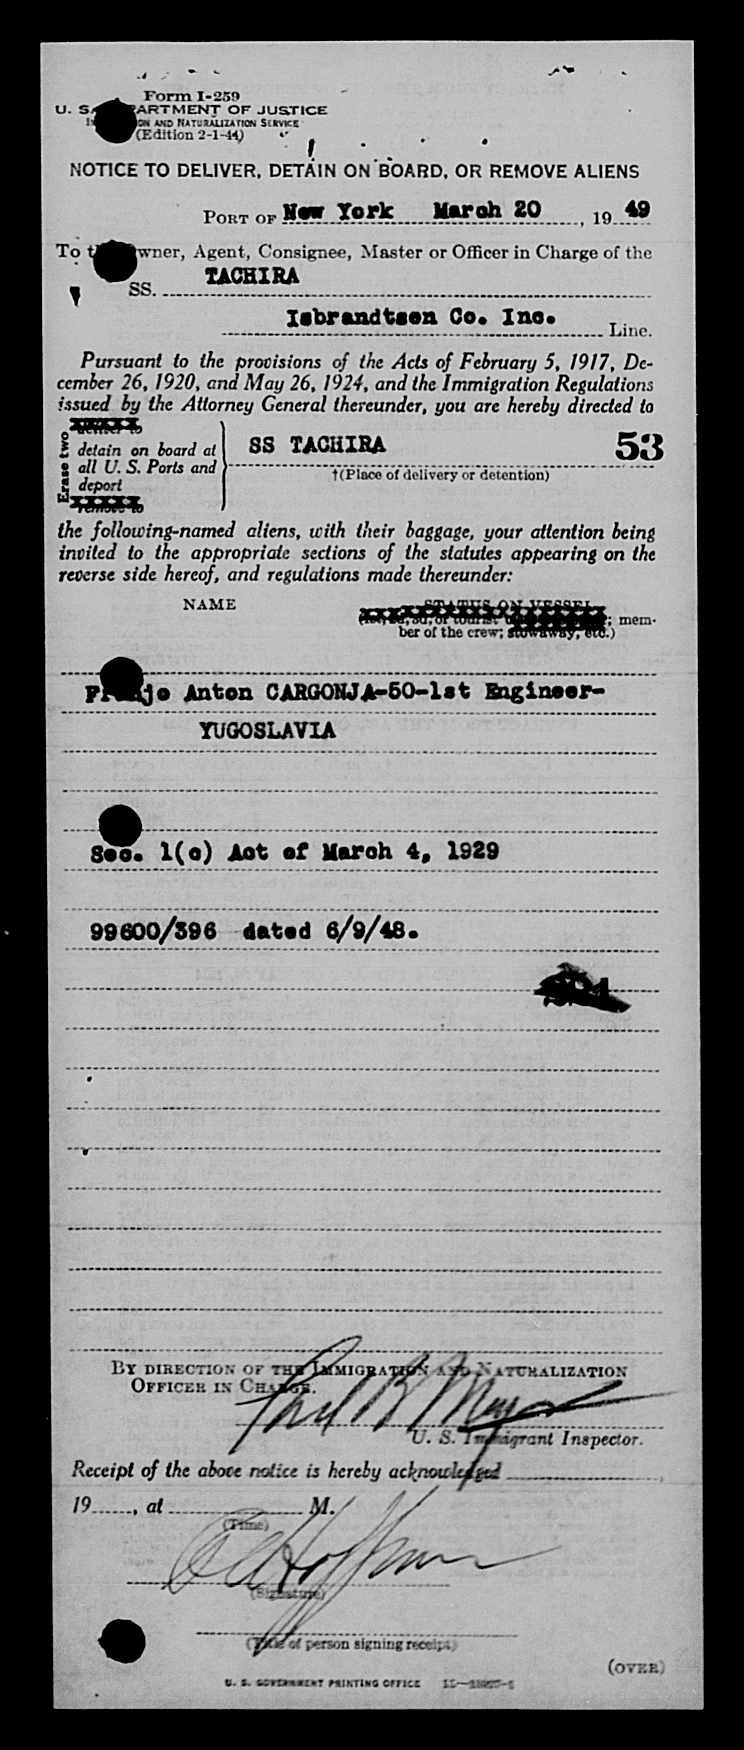 Form I-259
U. S. DEPARTMENT OF JUSTICE
IMMIGRATION AND NATURALIZATION SERVICE
(Edition 2-1-44)
NOTICE TO DELIVER, DETAIN ON BOARD, OR REMOVE ALIENS
PORT OF New York March 20, 19 49
To the Owner, Agent, Consignee, Master or Officer in Charge of the
SS. TACHIRA
Isbrandtsen Co. Inc. Line.
Pursuant to the provisions of the Acts of February 5, 1917, De-
cember 26, 1920, and May 26, 1924, and the Immigration Regulations
issued by the Attorney General thereunder, you are hereby directed to
Erase two
deliver to
detain on board at
all U. S. Ports and
deport
remove to
SS TACHIRA 53
†(Place of delivery or detention)
the following-named aliens, with their baggage, your attention being
invited to the appropriate sections of the statutes appearing on the
reverse side hereof, and regulations made thereunder:
NAME STATUS ON VESSEL
(1st, 2d, 3d, or tourist ; mem-
ber of the crew; stowaway, etc.)
Franjo Anton CARGONJA-50-1st Engineer-
YUGOSLAVIA
Sec. 1(c) Act of March 4, 1929
99600/396 dated 6/9/48.
BY DIRECTION OF THE IMMIGRATION AND NATURALIZATION
OFFICER IN CHARGE.
U. S. Immigrant Inspector.
Receipt of the above notice is hereby acknowledged ,
19 , at M.
(Time)
(Signature)
(Title of person signing receipt)
(OVER)
U. S. GOVERNMENT PRINTING OFFICE